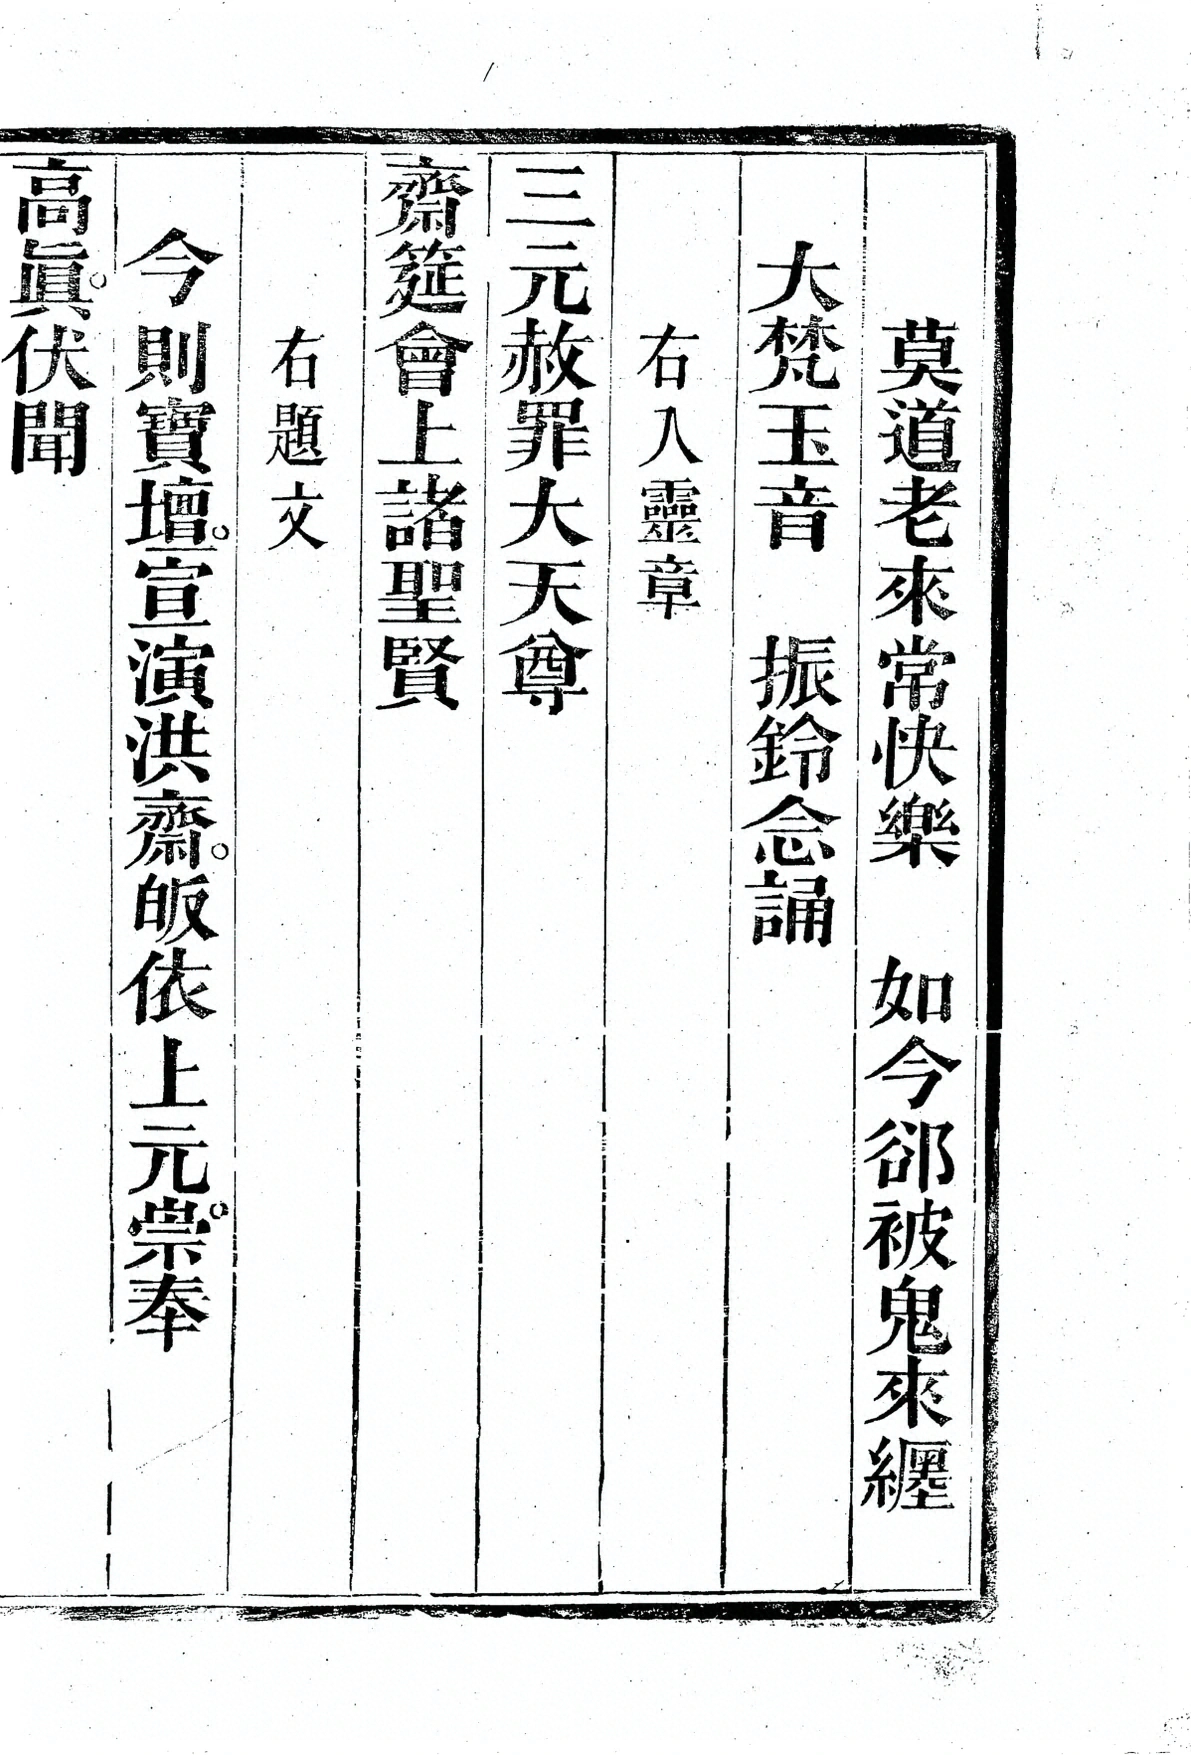 莫道老來常快樂　如今郤被鬼來纏
大梵玉音　振鈴念誦
右入靈章
三元赦罪大天尊
齋筵會上諸聖賢
右題文
今則寶壇。宣演洪齋。皈依上元。崇奉
高眞。伏聞